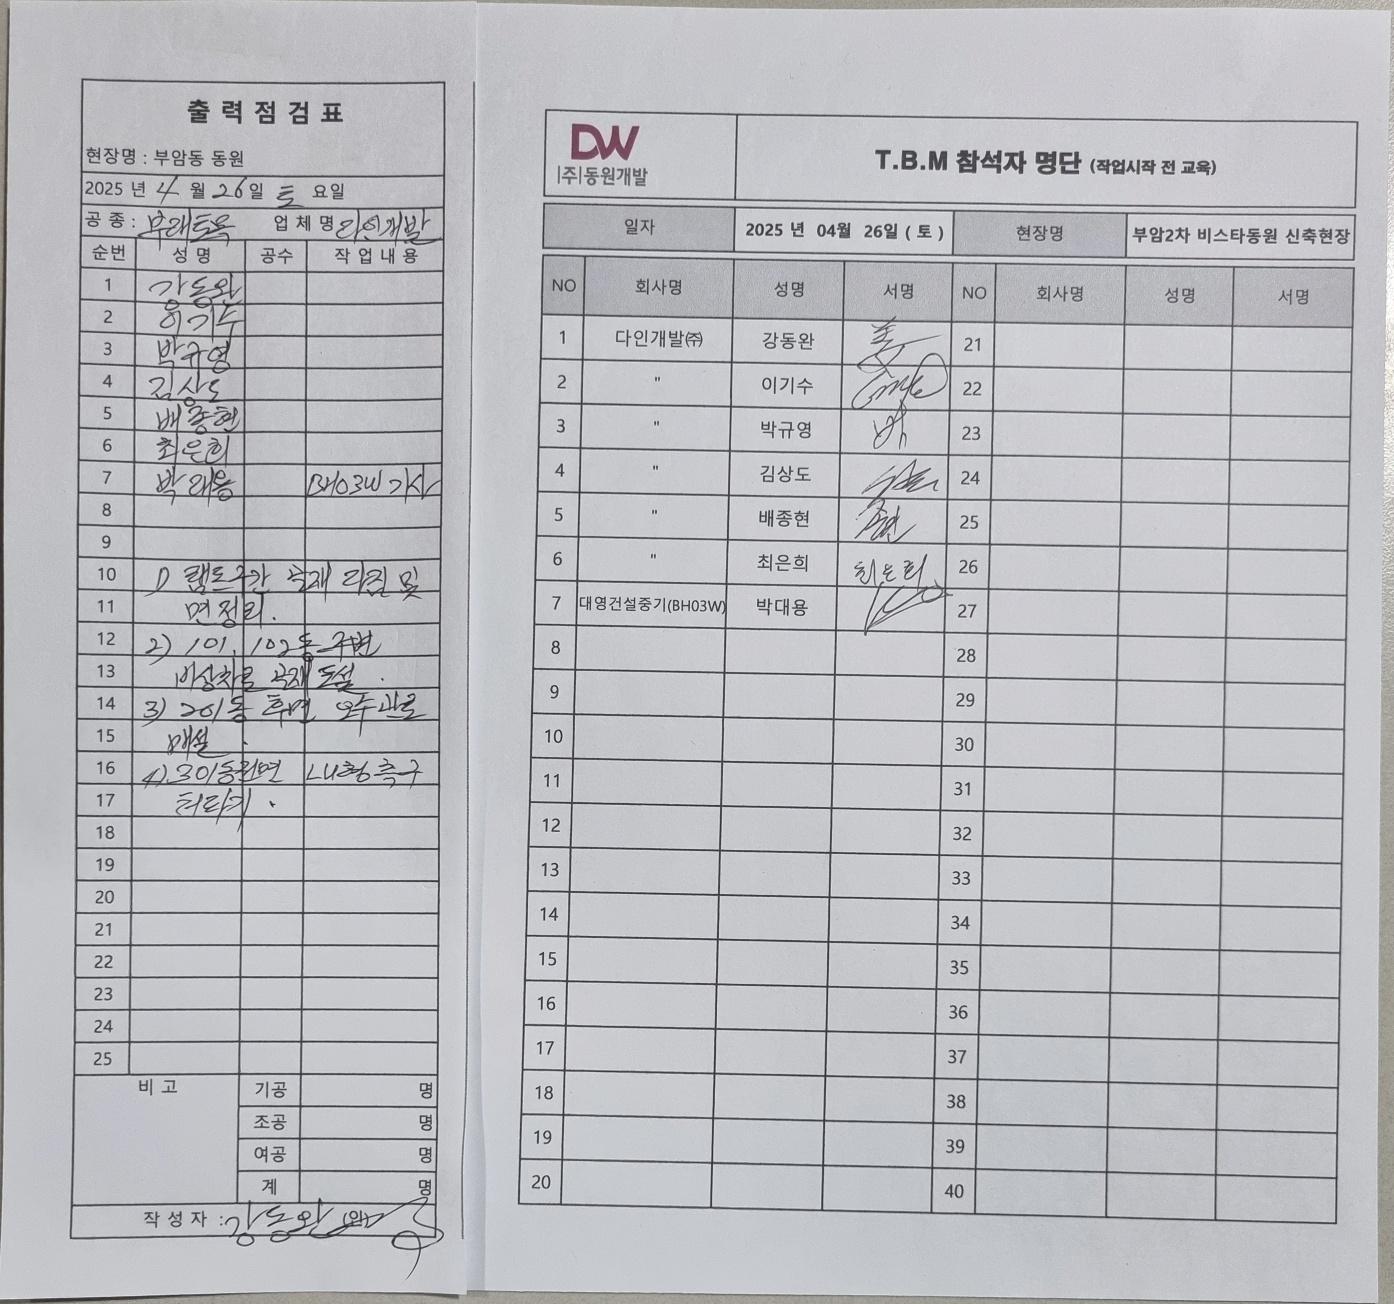 출력점검표
현장명 : 부암동 동원
2025 년 4 월 26일 토 요일
공종 : 부대토목 업체명 다인개발
순번 성명 공수 작업내용
1 강동완
2 이기수
3 박규영
4 김상도
5 배종현
6 최은희
7 박대용 BH03W 기사
8
9
10 1) 램프구간 골재 다짐 및
11 면정리.
12 2) 101, 102동 주변
13 비상차로 골재 포설.
14 3) 201동 후면 오수관로
15 매설.
16 4) 301동 뒷면 L U형측구
17 터파기.
18
19
20
21
22
23
24
25
비고 기공 명
조공 명
여공 명
계 명
작성자 : 강동완 (인)
DW
(주)동원개발
T.B.M 참석자 명단 (작업시작 전 교육)
일자 2025 년 04월 26일 ( 토 ) 현장명 부암2차 비스타동원 신축현장
NO 회사명 성명 서명 NO 회사명 성명 서명
1 다인개발㈜ 강동완 21
2 " 이기수 22
3 " 박규영 박 23
4 " 김상도 24
5 " 배종현 25
6 " 최은희 최은희 26
7 대영건설중기(BH03W) 박대용 27
8 28
9 29
10 30
11 31
12 32
13 33
14 34
15 35
16 36
17 37
18 38
19 39
20 40